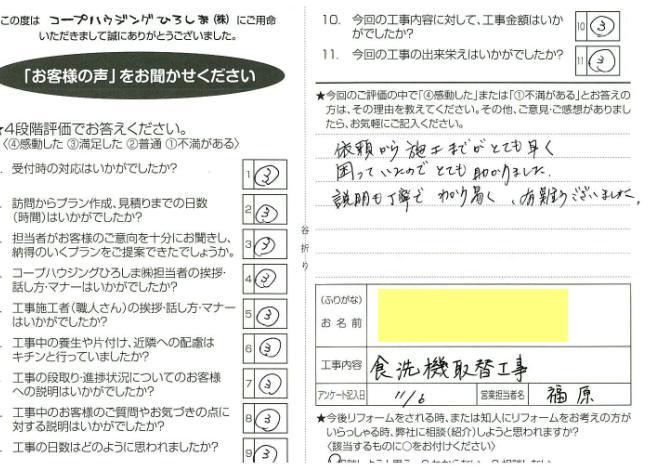 この度は コープハウジングひろしま(株) にご用命
いただきまして誠にありがとうございました。
「お客様の声」をお聞かせください
★4段階評価でお答えください。
〈④感動した ③満足した ②普通 ①不満がある〉
受付時の対応はいかがでしたか?
1 ③
訪問からプラン作成、見積りまでの日数
(時間)はいかがでしたか?
2 ③
担当者がお客様のご意向を十分にお聞きし、
納得のいくプランをご提案できたでしょうか。
3 ③
コープハウジングひろしま㈱担当者の挨拶・
話し方・マナーはいかがでしたか?
4 ③
工事施工者(職人さん)の挨拶・話し方・マナー
はいかがでしたか?
5 ③
工事中の養生や片付け、近隣への配慮は
キチンと行っていましたか?
6 ③
工事の段取り・進捗状況についてのお客様
への説明はいかがでしたか?
7 ③
工事中のお客様のご質問やお気づきの点に
対する説明はいかがでしたか?
8 ③
工事の日数はどのように思われましたか?
9 ③
谷折り
10. 今回の工事内容に対して、工事金額はいか
がでしたか?
10 ③
11. 今回の工事の出来栄えはいかがでしたか?
11 ③
★今回のご評価の中で「④感動した」または「①不満がある」とお答えの
方は、その理由を教えてください。その他、ご意見・ご感想がありまし
たら、お気軽にご記入ください。
依頼から施工までがとても早く
困っていたのでとても助かりました.
説明も丁寧で わかり易く 、有難うございました.
(ふりがな)
お名前
工事内容 食洗機取替工事
アンケート記入日 11/6 営業担当者名 福原
★今後リフォームをされる時、または知人にリフォームをお考えの方が
いらっしゃる時、弊社に相談(紹介)しようと思われますか?
〈該当するものに○をお付けください〉